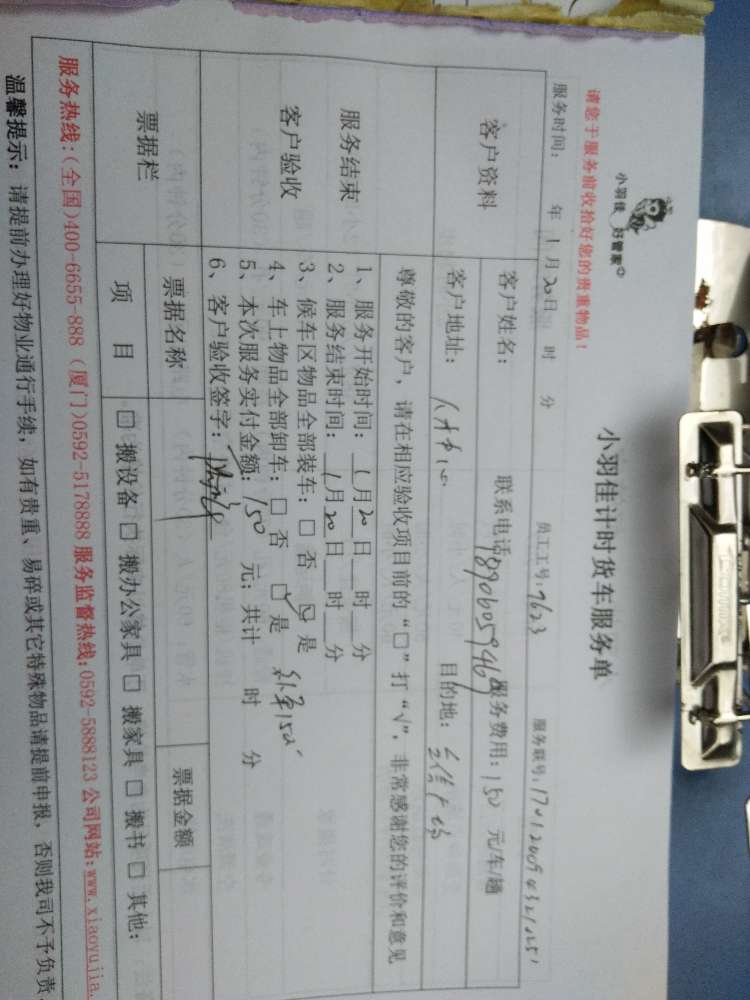 小羽佳 好管家
小羽佳计时货车服务单
请您于服务前收拾好您的贵重物品！
服务时间： 年 1月20日 时 分 员工工号：7623 服务联号：
客户资料
客户姓名： 联系电话 服务费用：150 元/车/趟
客户地址： 目的地：
尊敬的客户，请在相应验收项目前的“□”打“√”，非常感谢您的评价和意见
服务结束
客户验收
1、服务开始时间：1月20日 时 分
2、服务结束时间：1月20日 时 分
3、候车区物品全部装车：□ 否 ☑ 是
4、车上物品全部卸车：□ 否 ☑ 是
5、本次服务实付金额：150 元；共计 时 分
6、客户验收签字：
票据栏
票据名称 票据金额
项 目 □ 搬设备 □ 搬办公家具 □ 搬家具 □ 搬书 □ 其他：
服务热线：(全国)400-6655-888 (厦门)0592-5178888 服务监督热线：0592-5888123 公司网站：www.xiaoyujia.
温馨提示：请提前办理好物业通行手续，如有贵重、易碎或其它特殊物品请提前申报，否则我司不予负责